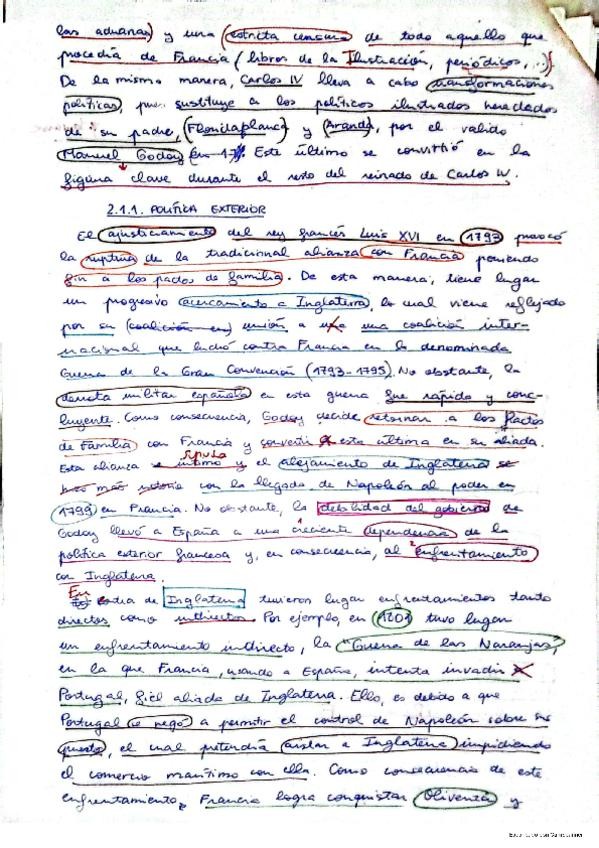 las aduanas) y una (estricta censura) de todo aquello que
procedía de Francia (libros de la Ilustración, periódicos,...)
De la misma manera, Carlos IV lleva a cabo transformaciones
políticas, pues sustituye a los políticos ilustrados heredados
de su padre, (Floridablanca) y (Aranda), por el valido
Manuel Godoy (en 17 Este último se convirtió en la
figura clave durante el resto del reinado de Carlos IV.
2.1.1. POLÍTICA EXTERIOR
El ajusticiamiento del rey francés Luis XVI en 1793 provocó
la ruptura de la tradicional alianza con Francia poniendo
fin a los pactos de familia. De esta manera, tiene lugar
un progresivo acercamiento a Inglaterra, lo cual viene reflejado
por su (coalición en) unión a una una coalición inter-
nacional que luchó contra Francia en la denominada
Guerra de la Gran Convención (1793-1795). No obstante, la
derrota militar española en esta guerra fue rápida y conc-
luyente. Como consecuencia, Godoy decide retornar a los Pactos
de Familia con Francia y convertir a esta última en su aliada.
Esta alianza se íntimo y el alejamiento de Inglaterra se
hizo más notoria con la llegada de Napoleón al poder en
1799 en Francia. No obstante, la debilidad del gobierno de
Godoy llevó a España a una creciente dependencia de la
política exterior francesa y, en consecuencia, al enfrentamiento
con Inglaterra.
En contra de Inglaterra tuvieron lugar enfrentamientos tanto
directos como indirectos. Por ejemplo, en 1801 tuvo lugar
un enfrentamiento indirecto, la "Guerra de las Naranjas",
en la que Francia, usando a España, intenta invadir
Portugal, fiel aliada de Inglaterra. Ello, es debido a que
Portugal se negó a permitir el control de Napoleón sobre sus
puertos, el cual pretendía aislar a Inglaterra impidiendo
el comercio marítimo con ella. Como consecuencia de este
enfrentamiento, Francia logra conquistar Olivenza y